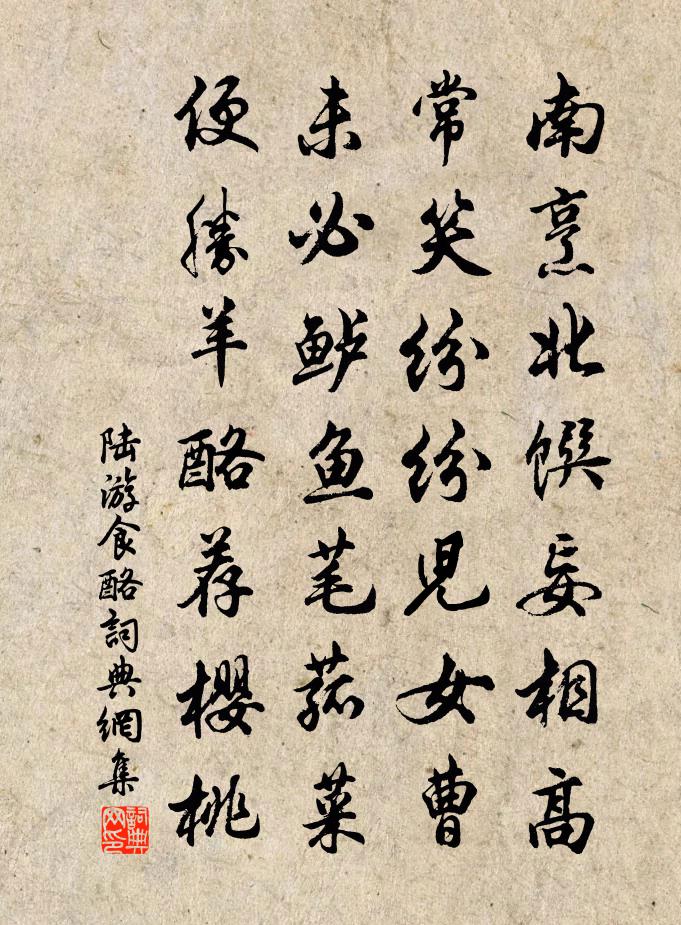 南烹北馔妄相高
常笑纷纷児女曹
未必鲈鱼芼菰菜
便勝羊酪荐樱桃
陆游食酪詞典網集
詞典網印